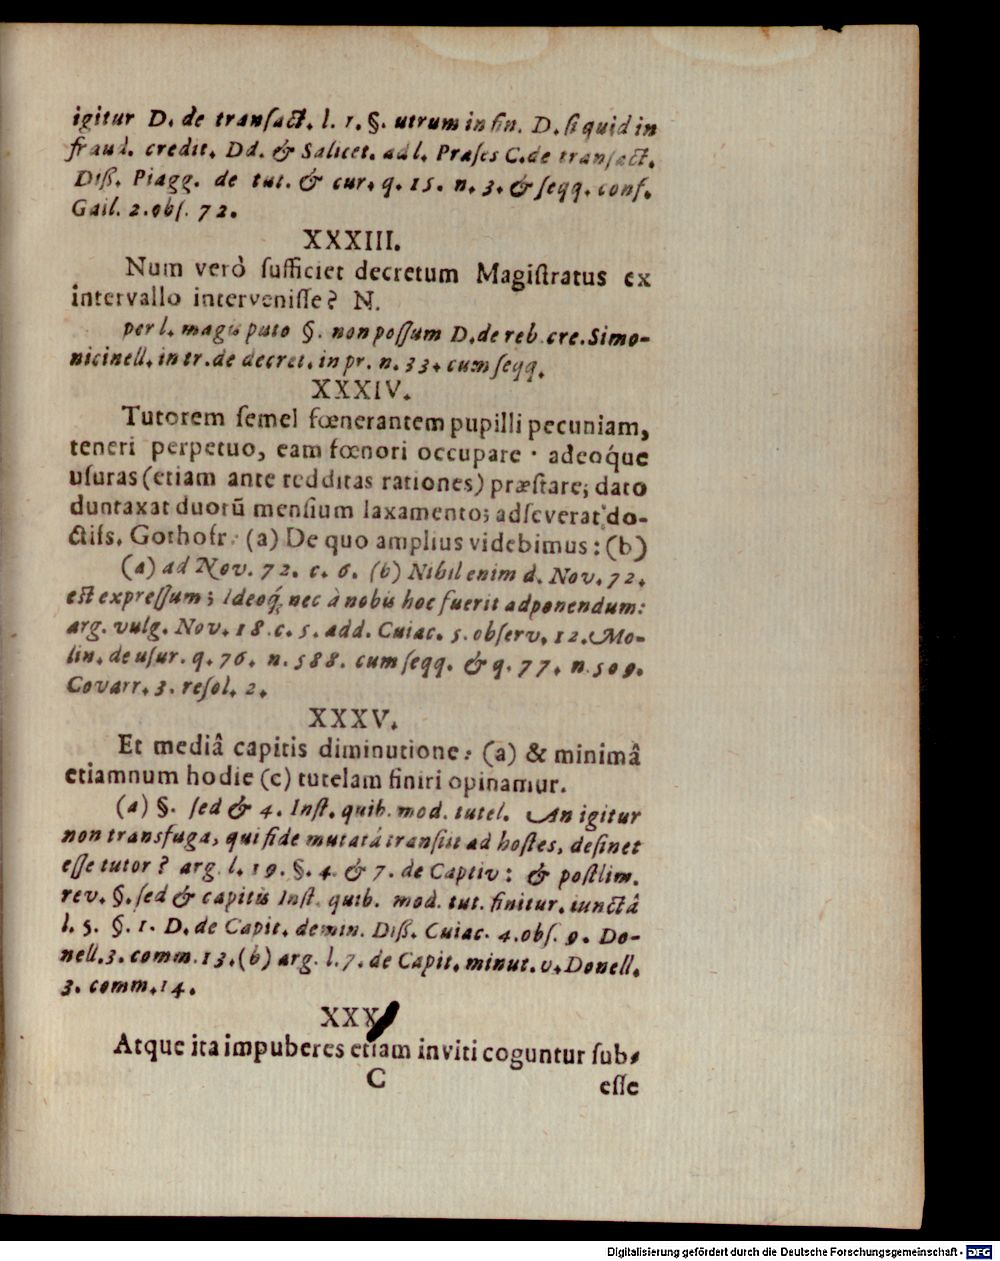 igitur D. de transact. l. 1. §. utrum in fin. D. si quid in
fraud. credit. Dd. & Salicet. ad l. Præses C. de transact.
Diß. Piagg. de tut. & cur. q. 15. n. 3. & seqq. conf.
Gail. 2. obs. 72.
XXXIII.
Num verò sufficiet decretum Magistratus ex
intervallo intervenisse? N.
per l. magis puto §. non possum D. de reb. cre. Simo-
nicinell. in tr. de decret. in pr. n. 33. cum seqq.
XXXIV.
Tutorem semel fœnerantem pupilli pecuniam,
teneri perpetuo, eam fœnori occupare · adeóque
usuras (etiam ante redditas rationes) præstare; dato
duntaxat duorũ mensium laxamento; adseverat do-
ctiss. Gothofr. (a) De quo amplius videbimus: (b)
(a) ad Nov. 72. c. 6. (b) Nihil enim d. Nov. 72.
est expressum; Ideoq́; nec à nobis hoc fuerit adponendum:
arg. vulg. Nov. 18. c. 5. add. Cuiac. 5. observ. 12. Mo-
lin. de usur. q. 76. n. 588. cum seqq. & q. 77. n. 509.
Covarr. 3. resol. 2.
XXXV.
Et mediâ capitis diminutione: (a) & minimâ
etiamnum hodie (c) tutelam finiri opinamur.
(a) §. sed & 4. Inst. quib. mod. tutel. An igitur
non transfuga, qui fide mutatá transiit ad hostes, desinet
esse tutor? arg. l. 19. §. 4. & 7. de Captiv: & postlim.
rev. §. sed & capitis Inst. quib. mod. tut. finitur. iunctâ
l. 5. §. 1. D. de Capit. demin. Diß. Cuiac. 4. obs. 9. Do-
nell. 3. comm. 13. (b) arg. l. 7. de Capit. minut. v. Donell.
3. comm. 14.
XXX
Atque ita impuberes etiam inviti coguntur sub-
C
esse
Digitalisierung gefördert durch die Deutsche Forschungsgemeinschaft - DFG